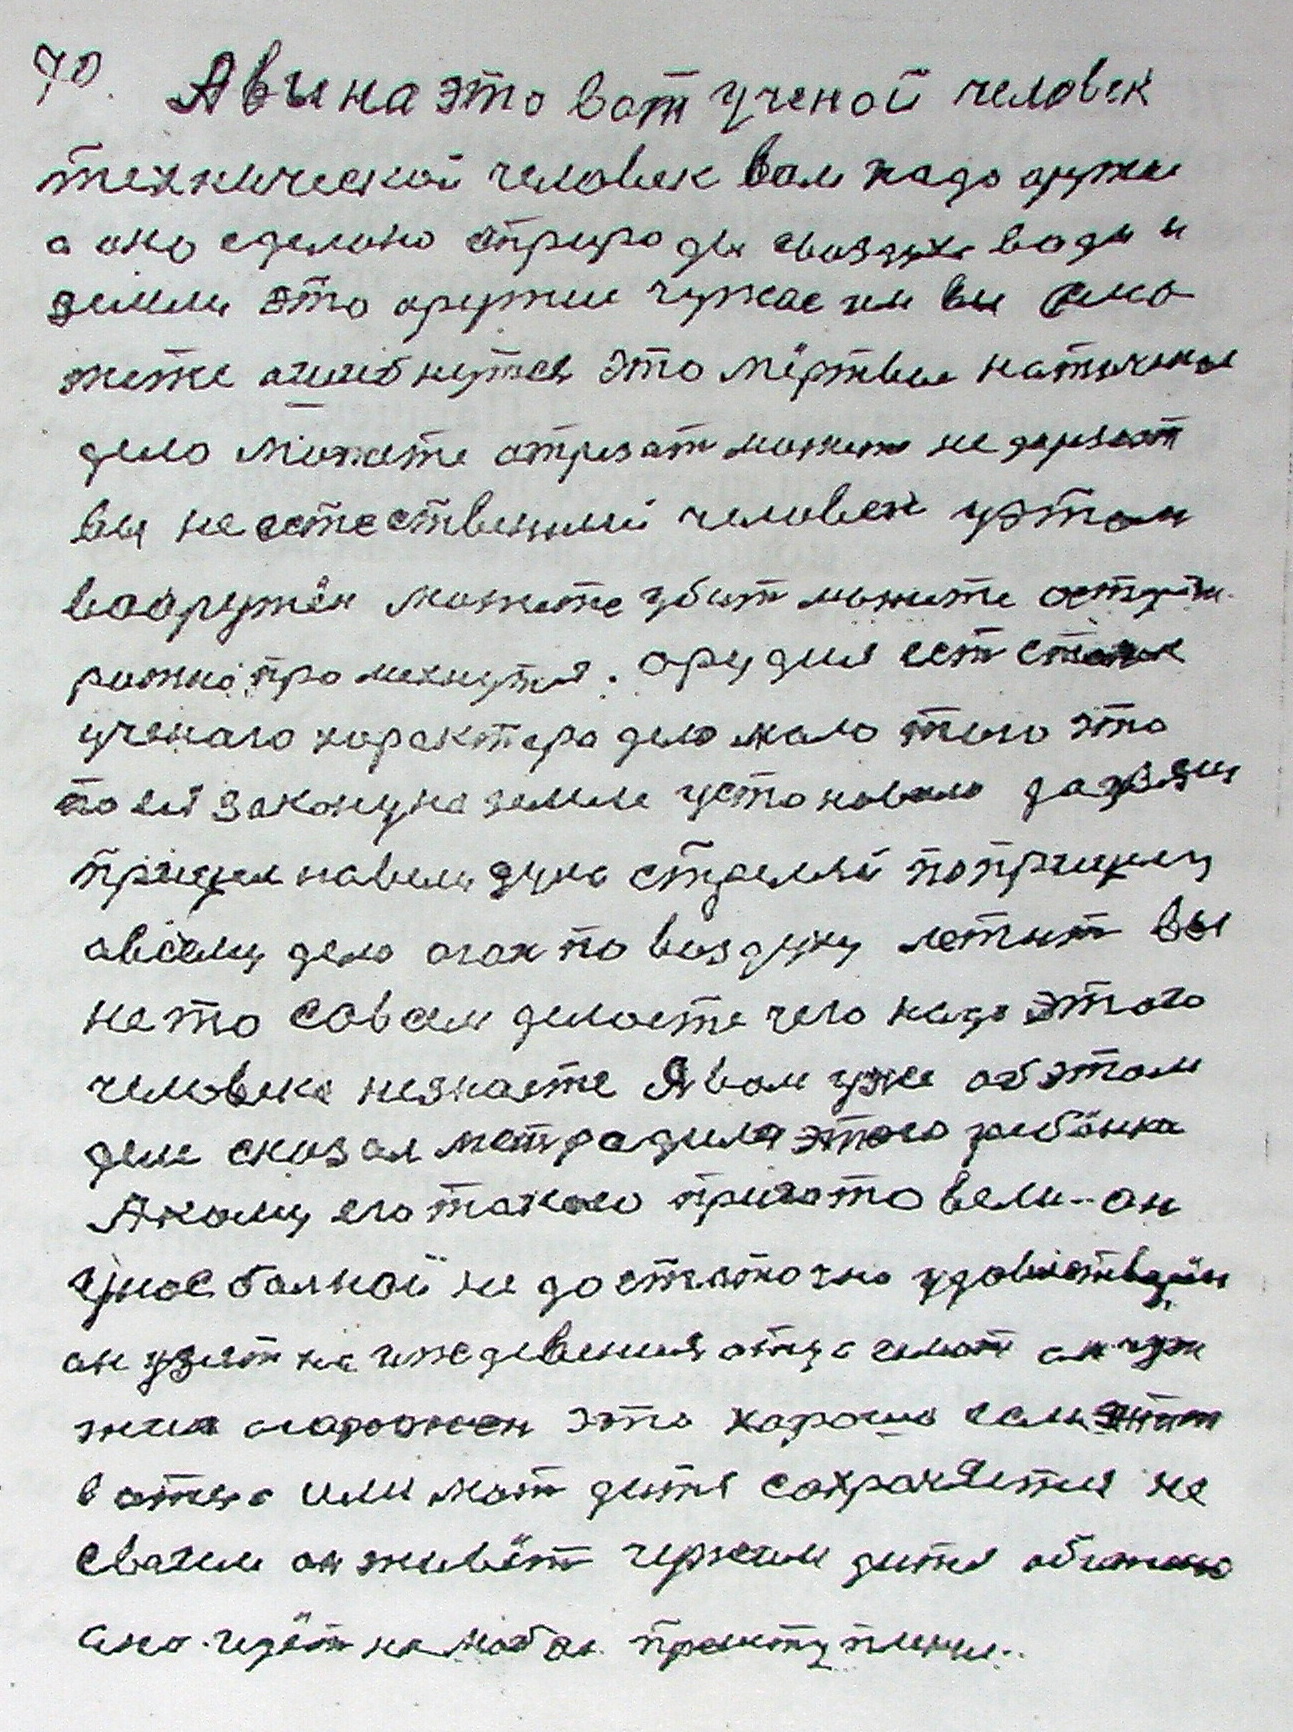 70. А вы на это вот ученой человек
технической человек вам надо оружие
а оно сделоно с природы своздуха воды и
земли это оружие чужое им вы смо
жете ошибнутся это мёртвые
дело можете отрезат можете не
вы не естественный человек у этом
вооружён можете убит можете
рожно промахнутся. орудия ест
ученаго характера дело мало того это
по ей закону на земле устоновлено
прицел навели дуло стреляй по прицелу
авсему дело огон по воздуху летит вы
не то совсем делаете чего надо этого
человека незнаете Я вам уже об этом
деле сказал мат радила этого ребёнка
А кому его такого приготовели-- он
у нас болной не достаточно удовлетварён
он узят на иждевения отца
огарожен это хорошо если
в отца или мат дитя сохраняется не
своем он живёт чужеим дитя обижено
оно. идёт на любое преступление..